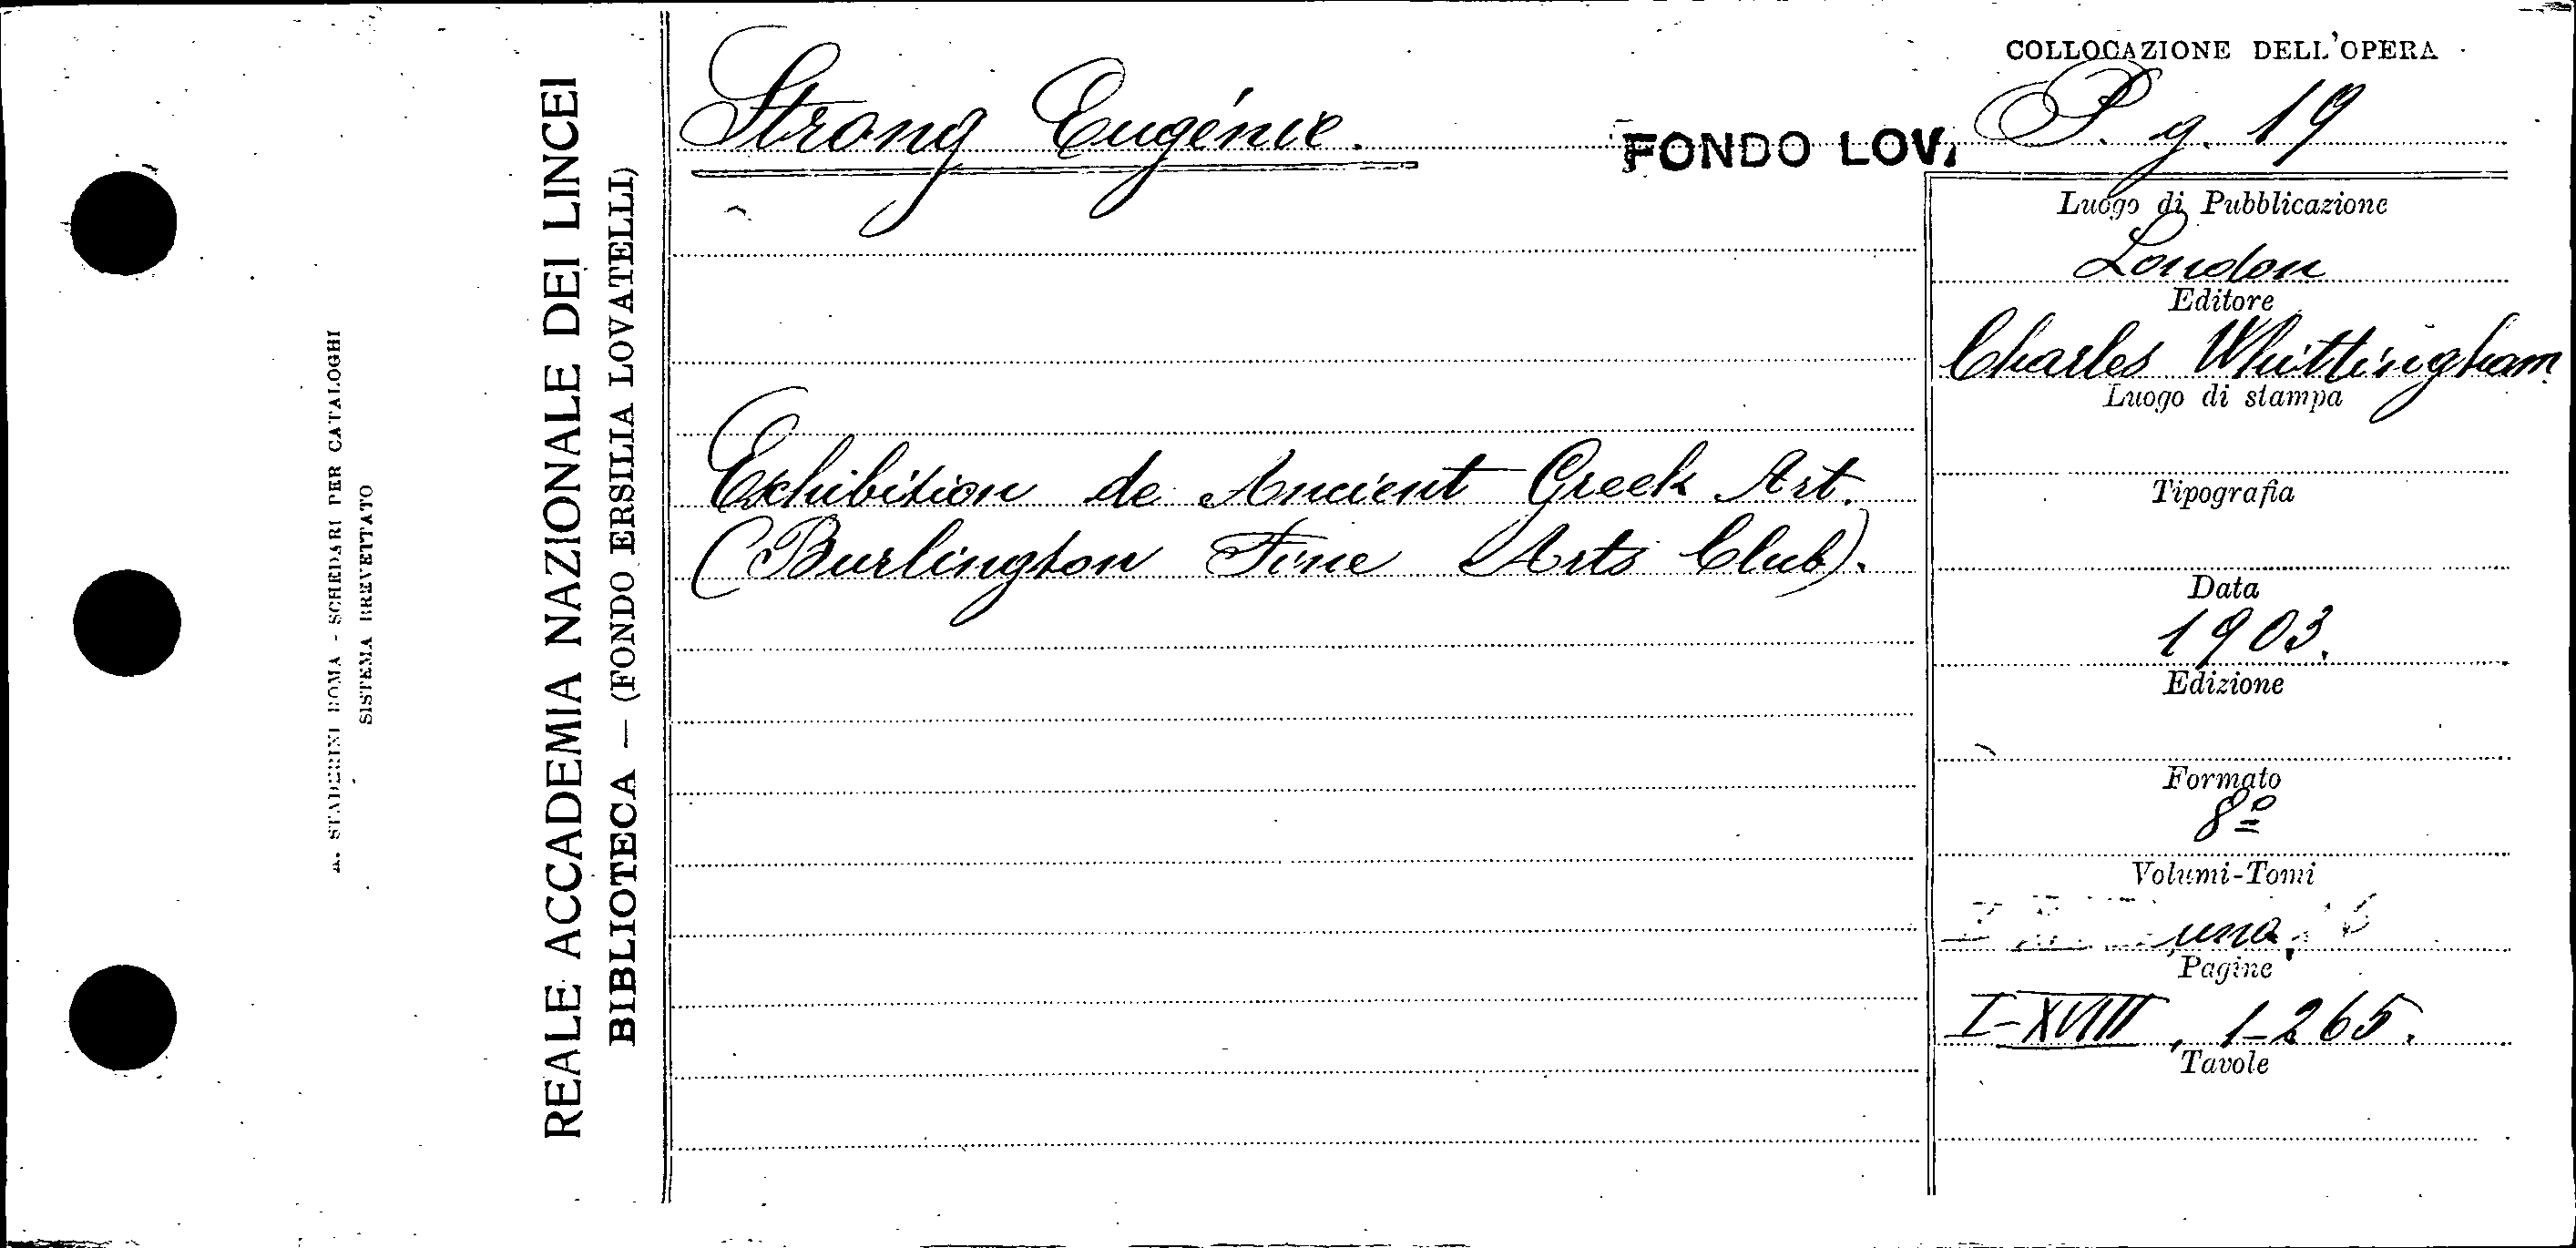 A. STADERINI ROMA - SCHEDARI PER CATALOGHI
SISTEMA BREVETTATO
REALE ACCADEMIA NAZIONALE DEI LINCEI
BIBLIOTECA — (FONDO ERSILIA LOVATELLI)
Strong Eugénie.
FONDO LOV.
Exhibition de Ancient Greek Art.
(Burlington Fine Arts Club).
COLLOCAZIONE DELL'OPERA
P. g. 19
Luogo di Pubblicazione
London
Editore
Charles Whittingham
Luogo di stampa
Tipografia
Data
1903.
Edizione
Formato
8º
Volumi-Tomi
uno
Pagine
I-XVIII, 1-265.
Tavole